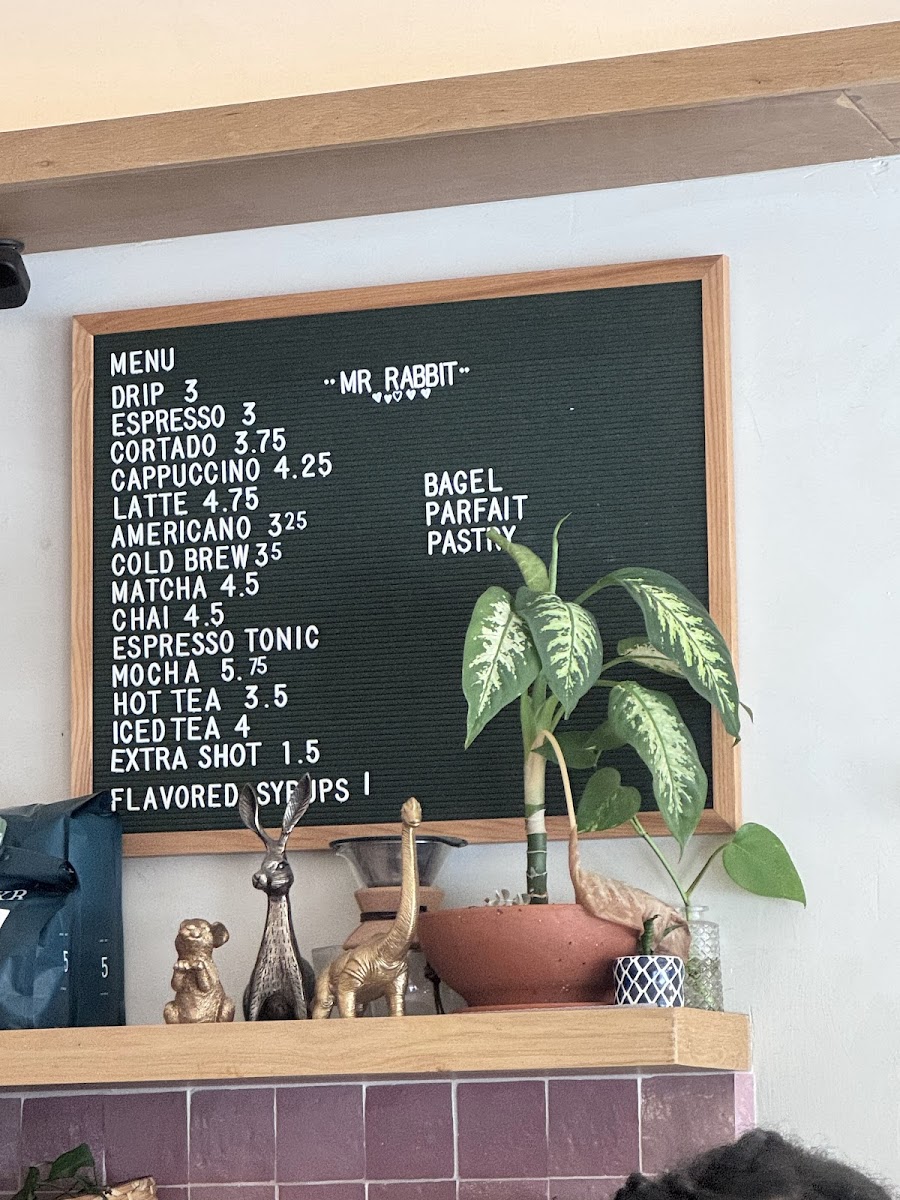 MENU
DRIP 3
ESPRESSO 3
CORTADO 3.75
CAPPUCCINO 4.25
LATTE 4.75
AMERICANO 3 25
COLD BREW 3 5
MATCHA 4.5
CHAI 4.5
ESPRESSO TONIC
MOCHA 5.75
HOT TEA 3.5
ICED TEA 4
EXTRA SHOT 1.5
FLAVORED SYRUPS 1
MR RABBIT
BAGEL
PARFAIT
PASTRY
5
5